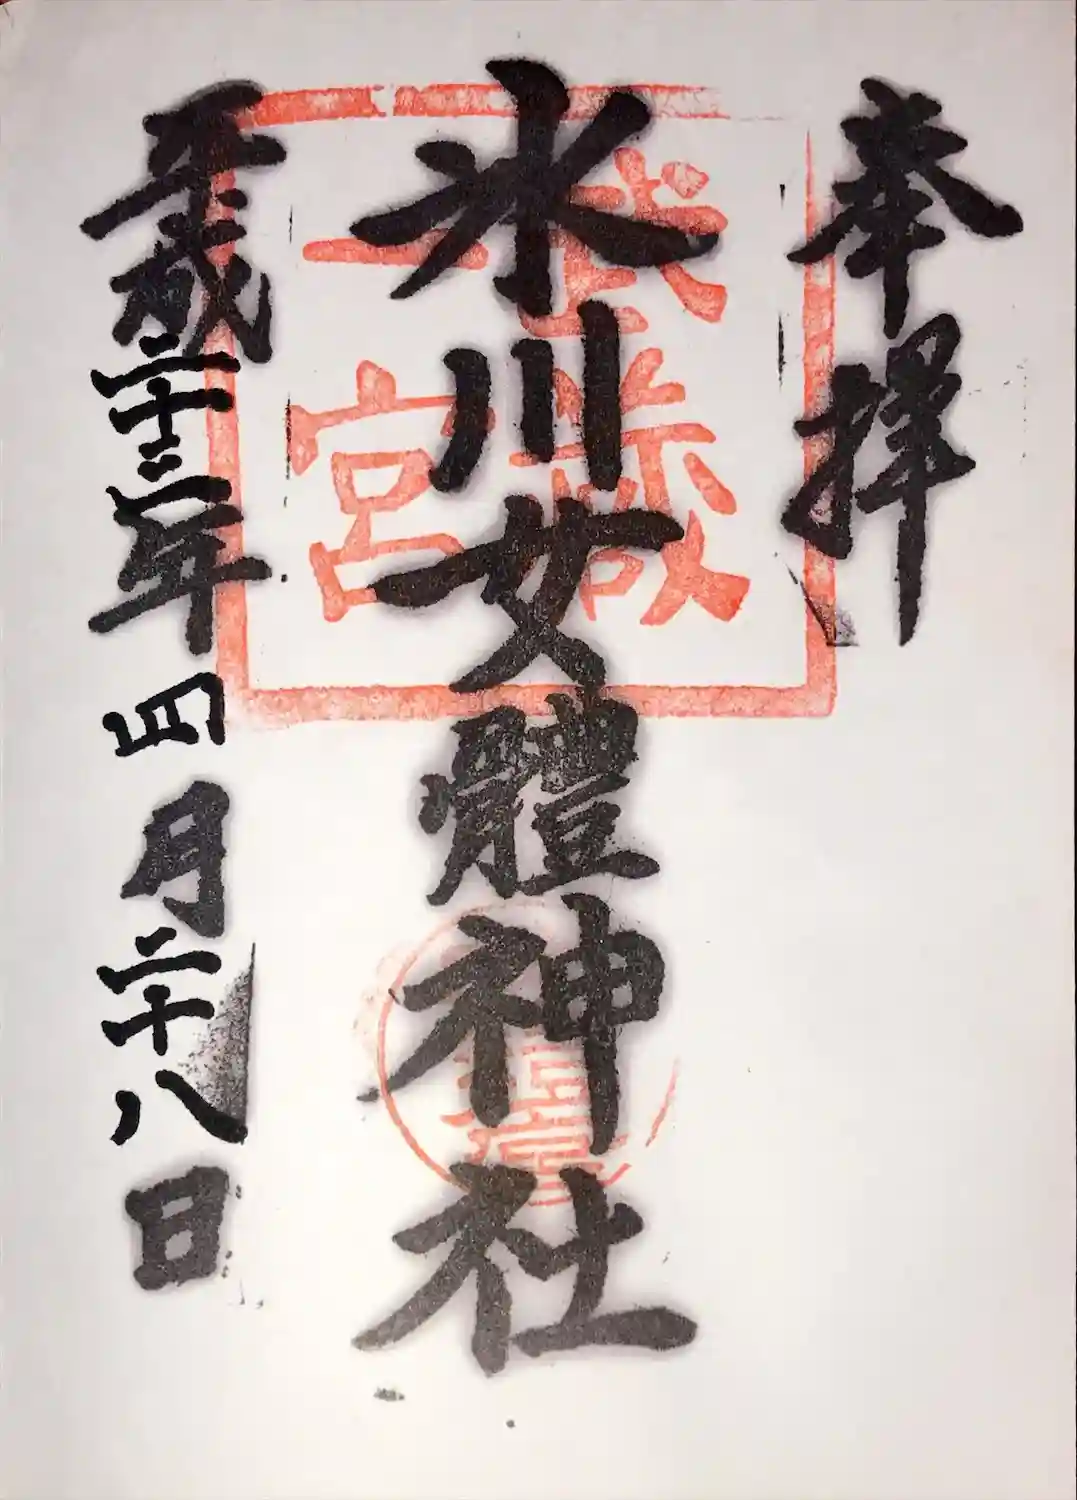 奉拝
武蔵
一宮
氷川女體神社
平成二十三年四月二十八日